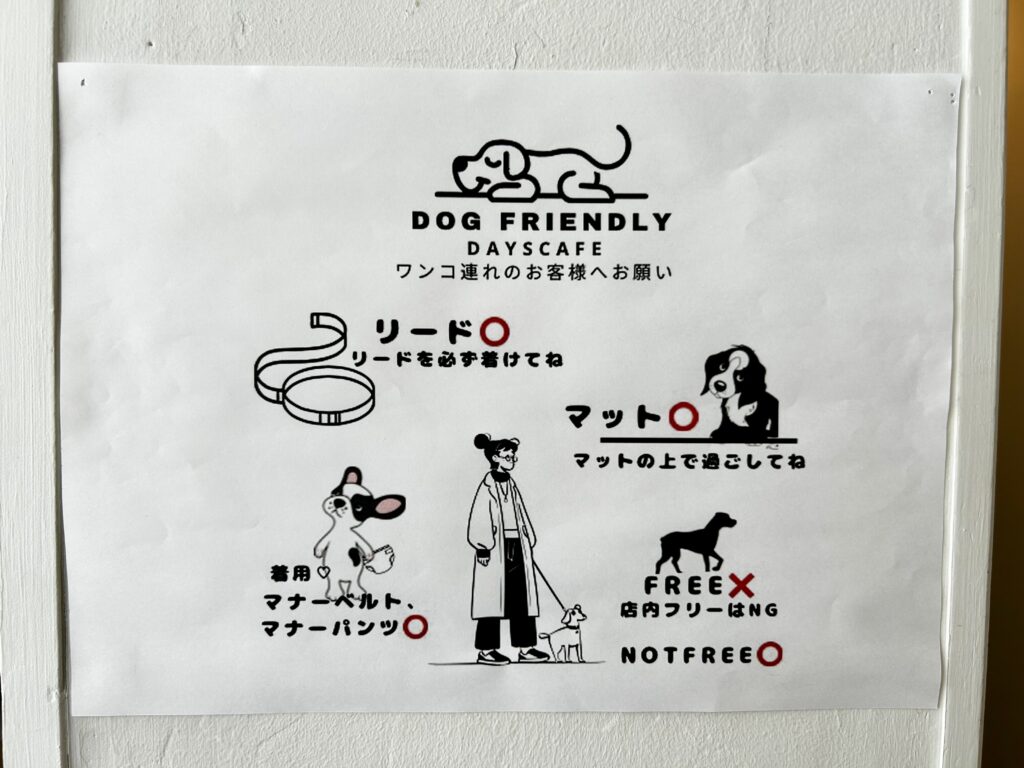 DOG FRIENDLY
DAYSCAFE
ワンコ連れのお客様へお願い
リード⭕
リードを必ず着けてね
マット⭕
マットの上で過ごしてね
着用♡
マナーベルト、
マナーパンツ⭕
FREE❌
店内フリーはNG
NOTFREE⭕